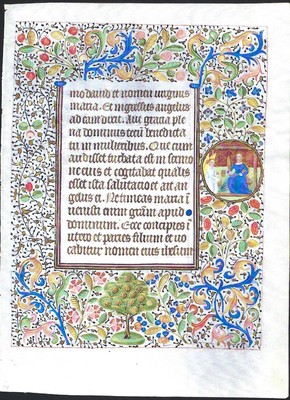 mo dauid et nomen uirginis
maria. Et ingressus angelus
ad eam dixit. Aue gracia ple
na dominus tecū benedicta
tu in mulieribus. Que cum
audisset turbata est in sermo
ne eius et cogitabat qualis
esset ista salutacio et ait an
gelus ei. Ne timeas maria ī
uenisti enim grām apud
dominum. Ecce concipies ī
utero et paries filium et uo
cabitur nomen eius ihesum